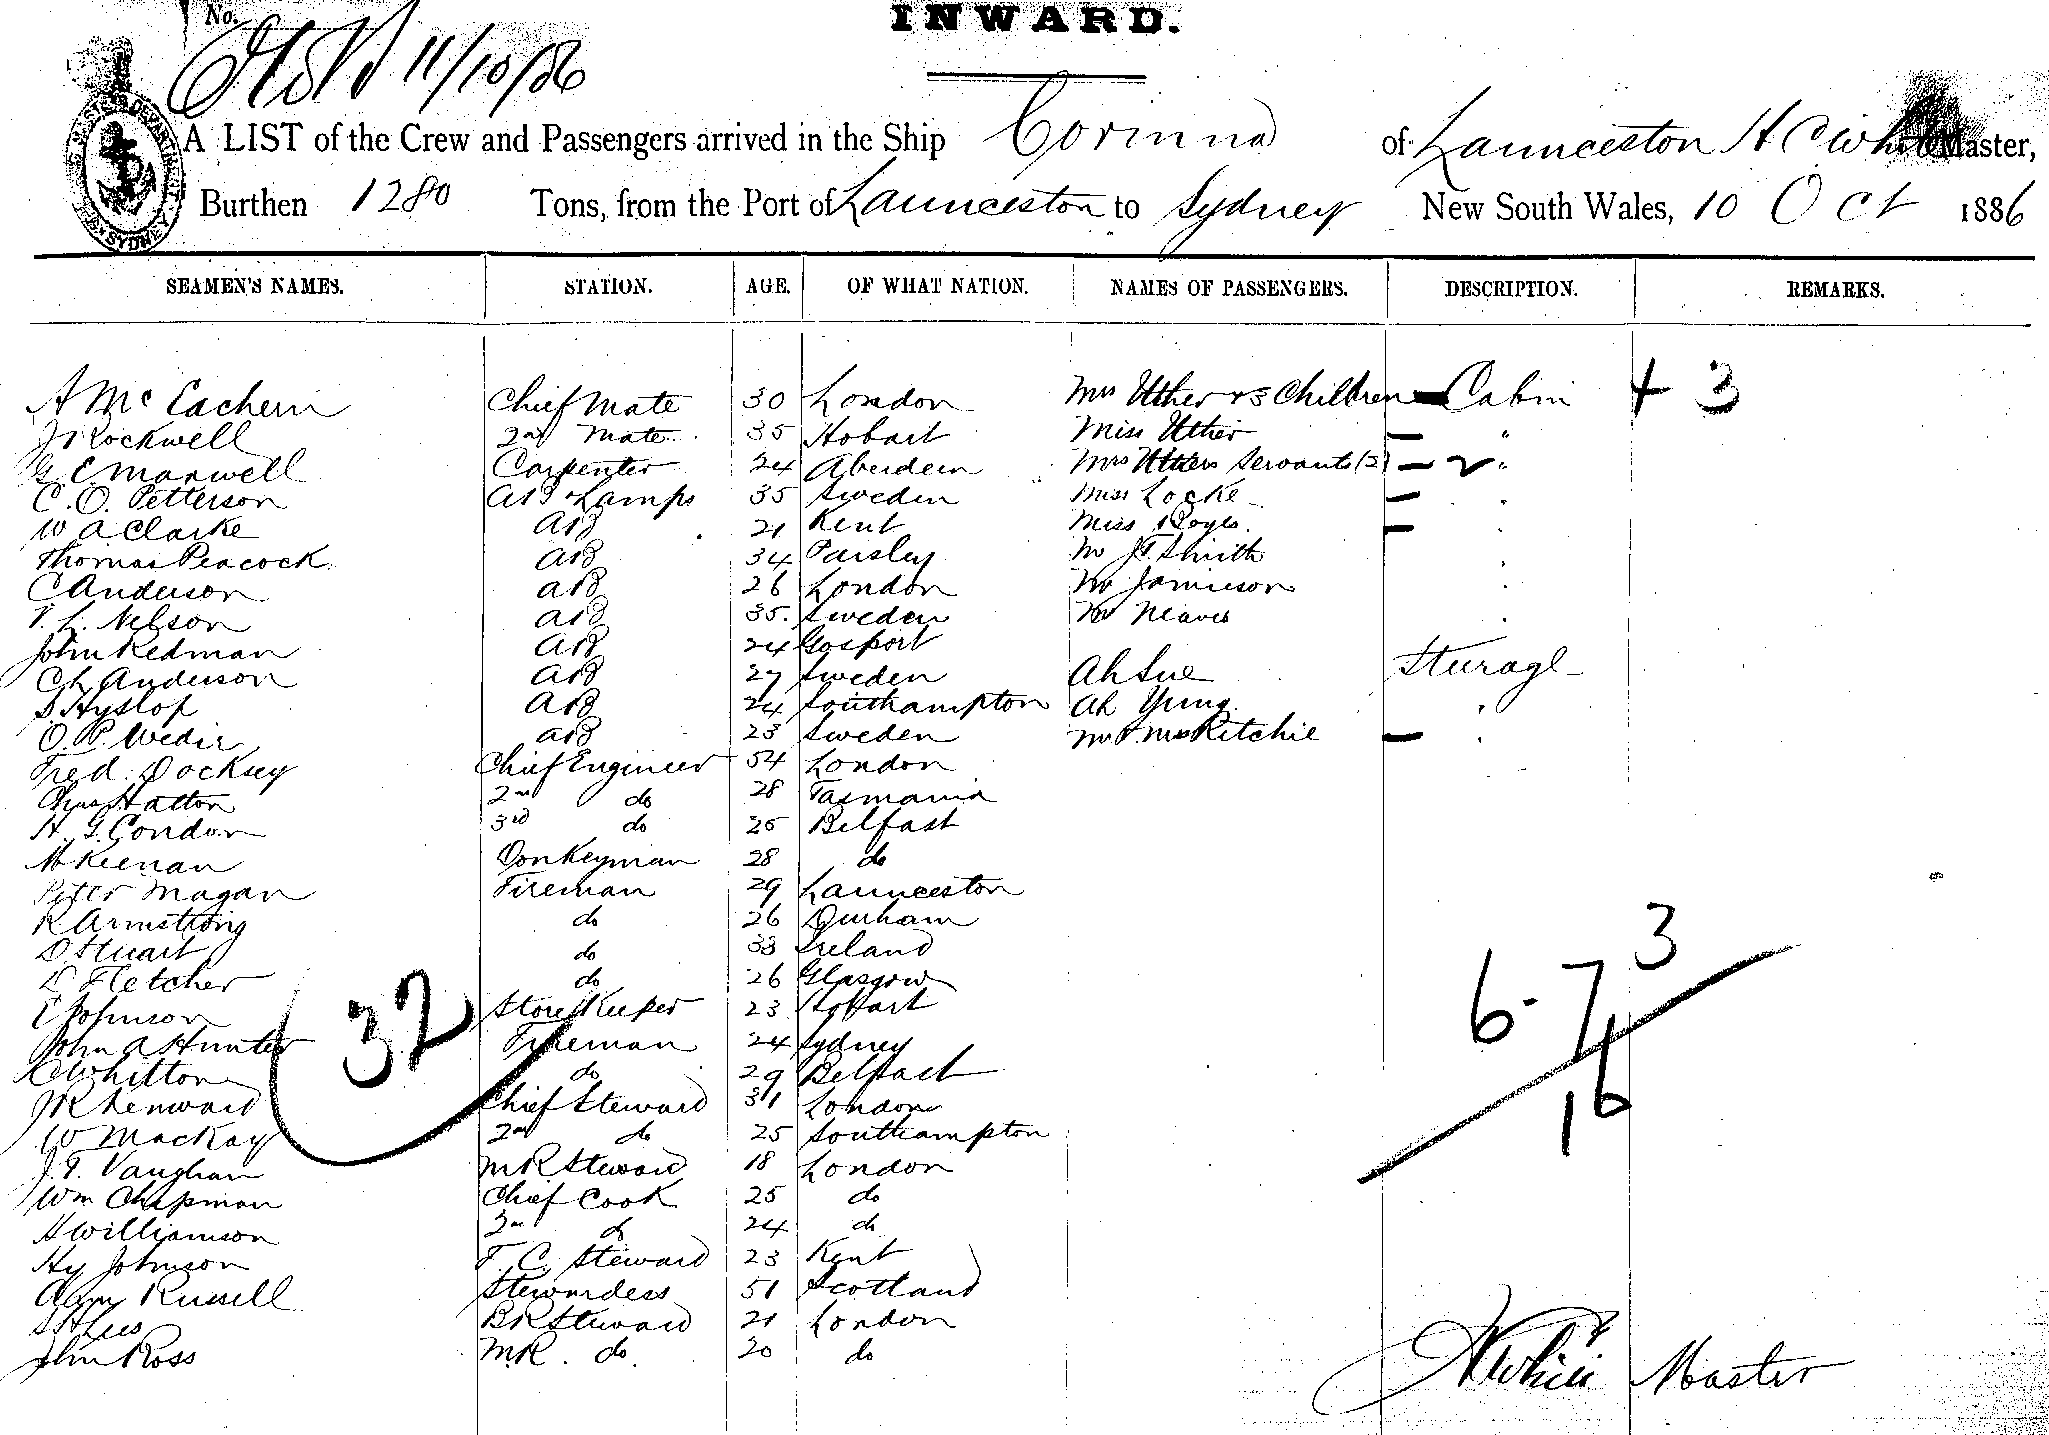 No.
INWARD.
11/10/86
A LIST of the Crew and Passengers arrived in the Ship Corinna of Launceston H C White Master,
Burthen 1280 Tons, from the Port of Launceston to Sydney New South Wales, 10 Oct 1886
SEAMEN'S NAMES. STATION. AGE. OF WHAT NATION. NAMES OF PASSENGERS. DESCRIPTION. REMARKS.
A McEachern Chief Mate 30 London Mrs Uther & 3 Children — Cabin + 3
J Rockwell 2nd Mate 35 Hobart Miss Uther — "
G E Maxwell Carpenter 24 Aberdeen Mrs Uthers Servants (2) — 2 "
C. O. Petterson AB & Lamps 35 Sweden Miss Locke — "
W A Clarke AB 21 Kent Miss — "
Thomas Peacock AB 34 Paisley Mr J T Smith "
C Anderson AB 26 London Mr Jamieson "
L. Nelson AB 35 Sweden Mr Neaves "
John Redman AB 24 Gosport
Ch Anderson AB 27 Sweden Ah Sue Sturage
D Hyslop AB 24 Southampton Ah Yung "
O. P. Wedir AB 23 Sweden McRitchie — "
Fred. Docksey Chief Engineer 54 London
Chas Hatton 2nd do 28 Tasmania
H. G. Gordon 3rd do 25 Belfast
M Keenan Donkeyman 28 do
Peter Magan Fireman 29 Launceston
R Armstrong do 26 Durham
D Stuart do 33 Ireland
D Fletcher do 26 Glasgow
E Johnson Store Keeper 23 Hobart
John A Hunter Fireman 24 Sydney
C Whitton do 29 Belfast
J R Kenward Chief Steward 31 London
W Mackay 2nd do 25 Southampton
J. T. Vaughan M R Steward 18 London
Wm Chapman Chief Cook 25 do
H Williamson 2nd do 24 do
Hy Johnson F. C. Steward 23 Kent
Russell Stewardess 51 Scotland
Lees B R Steward 21 London
John Ross M.R. do. 20 do
32
3
6 - 7
16
H C White Master